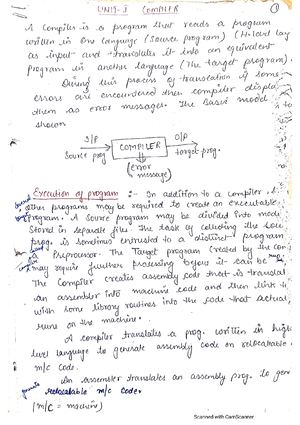 UNIT-I COMPILER
1
A Compiler is a program that reads a program
written in one language (source program) (H-level lag
as input and translates it into an equivalent
Program in another language (The target program).
During this process of translation if some
errors are encountered then compiler displa
them as error messages. The Basic model
shown
I/P O/P
Source prog COMPILER target prog.
(error
message)
Execution of program :- In addition to a compiler,
other programs may be required to create an executable
program. A source program may be divided into modu
Stored in separate file. The task of collecting the sou
prog. is sometimes entrusted to a distinct program
a Preprocessor. The Target program created by the com
may require further processing before it can be run
The Compiler creates assembly code that is translat
an assembler into machine code and then link t
with some library routines into the code that actual
runs on the machine.
A compiler translates a prog. written in high
level language to generate assembly code or relocatable
m/c code.
An assembler translates an assembly prog. to gene
relocatable m/c code.
(m/c = machine)
Scanned with CamScanner